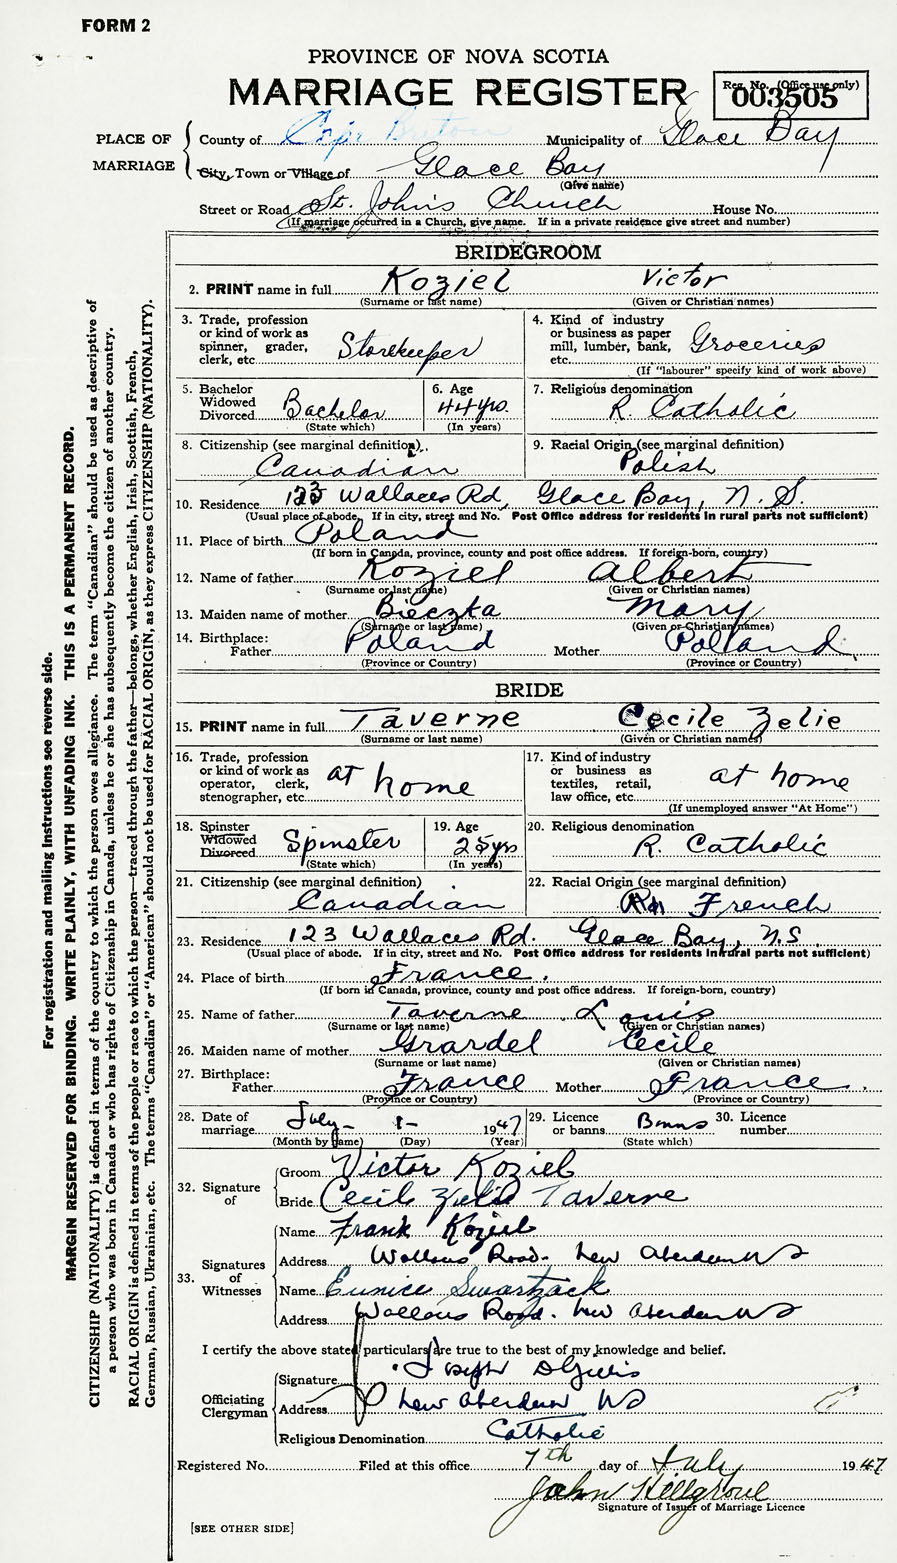 FORM 2
PROVINCE OF NOVA SCOTIA
MARRIAGE REGISTER
Reg. No. (Office use only)
003505
PLACE OF MARRIAGE
County of Cape Breton Municipality of Glace Bay
City, Town or Village of Glace Bay
(Give name)
Street or Road St. John's Church House No.
(If marriage occurred in a Church, give name. If in a private residence give street and number)
BRIDEGROOM
2. PRINT name in full Koziel Victor
(Surname or last name) (Given or Christian names)
3. Trade, profession or kind of work as spinner, grader, clerk, etc. Storekeeper
4. Kind of industry or business as paper mill, lumber, bank, etc. Groceries
(If "labourer" specify kind of work above)
5. Bachelor Widowed Divorced Bachelor
(State which)
6. Age 44 yrs.
(In years)
7. Religious denomination
R. Catholic
8. Citizenship (see marginal definition)
Canadian
9. Racial Origin (see marginal definition)
Polish
10. Residence 123 Wallaces Rd, Glace Bay, N. S.
(Usual place of abode. If in city, street and No. Post Office address for residents in rural parts not sufficient)
11. Place of birth Poland
(If born in Canada, province, county and post office address. If foreign-born, country)
12. Name of father Koziel Albert
(Surname or last name) (Given or Christian names)
13. Maiden name of mother Bieczka Mary
(Surname or last name) (Given or Christian names)
14. Birthplace:
Father Poland Mother Polland
(Province or Country) (Province or Country)
BRIDE
15. PRINT name in full Taverne Cecile Zelie
(Surname or last name) (Given or Christian names)
16. Trade, profession or kind of work as operator, clerk, stenographer, etc. at home
17. Kind of industry or business as textiles, retail, law office, etc. at home
(If unemployed answer "At Home")
18. Spinster Widowed Divorced Spinster
(State which)
19. Age 25 yrs
(In years)
20. Religious denomination
R. Catholic
21. Citizenship (see marginal definition)
Canadian
22. Racial Origin (see marginal definition)
French
23. Residence 123 Wallaces Rd. Glace Bay, N.S.
(Usual place of abode. If in city, street and No. Post Office address for residents in rural parts not sufficient)
24. Place of birth France.
(If born in Canada, province, county and post office address. If foreign-born, country)
25. Name of father Taverne Louis
(Surname or last name) (Given or Christian names)
26. Maiden name of mother Grardel Cecile
(Surname or last name) (Given or Christian names)
27. Birthplace:
Father France Mother France.
(Province or Country) (Province or Country)
28. Date of marriage July - 1 - 1947
(Month by name) (Day) (Year)
29. Licence or banns Banns
(State which)
30. Licence number
32. Signature of
Groom Victor Koziel
Bride Cecile Zelie Taverne
33. Signatures of Witnesses
Name Frank Koziel
Address Wallaces Road. New Aberdeen NS
Name Eunice Swartzack
Address Wallaces Road. New Aberdeen NS
I certify the above stated particulars are true to the best of my knowledge and belief.
Officiating Clergyman
Signature Joseph
Address New Aberdeen NS
Religious Denomination Catholic
Registered No. Filed at this office 7th day of July 1947
John Hillgrove
Signature of Issuer of Marriage Licence
[SEE OTHER SIDE]
For registration and mailing instructions see reverse side.
MARGIN RESERVED FOR BINDING. WRITE PLAINLY, WITH UNFADING INK. THIS IS A PERMANENT RECORD.
CITIZENSHIP (NATIONALITY) is defined in terms of the country to which the person owes allegiance. The term "Canadian" should be used as descriptive of
a person who was born in Canada or who has rights of Citizenship in Canada, unless he or she has subsequently become the citizen of another country.
RACIAL ORIGIN is defined in terms of the people or race to which the person—traced through the father—belongs, whether English, Irish, Scottish, French,
German, Russian, Ukrainian, etc. The terms "Canadian" or "American" should not be used for RACIAL ORIGIN, as they express CITIZENSHIP (NATIONALITY).